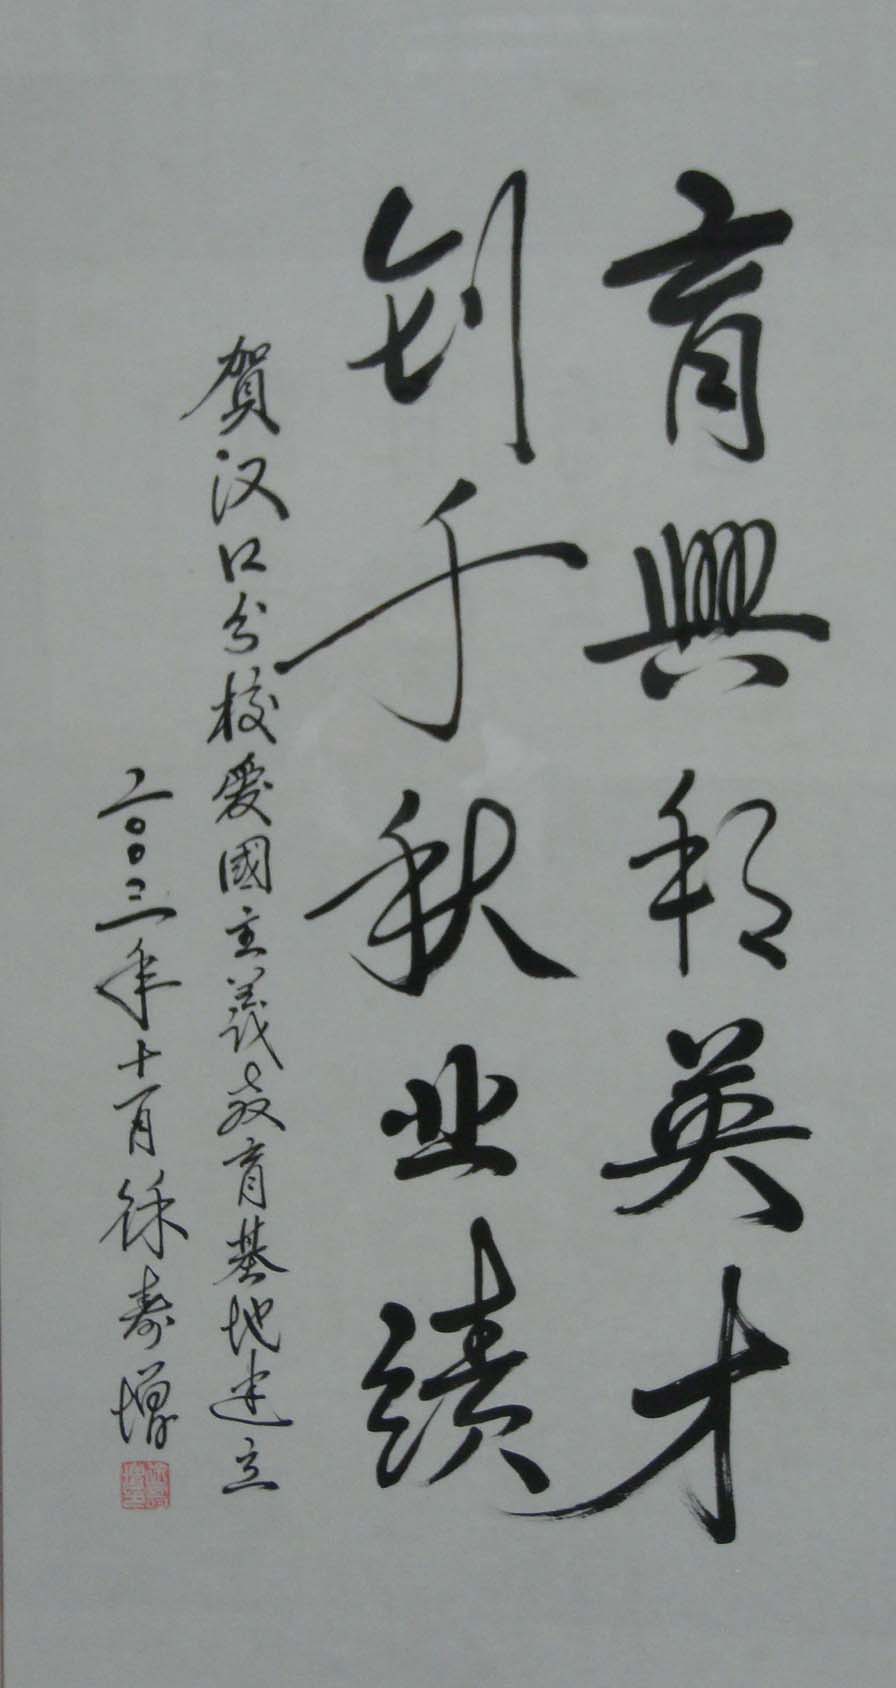 育興邦英才
创千秋业绩
贺汉口分校爱國主義教育基地建立
二〇〇三年十月 徐寿增